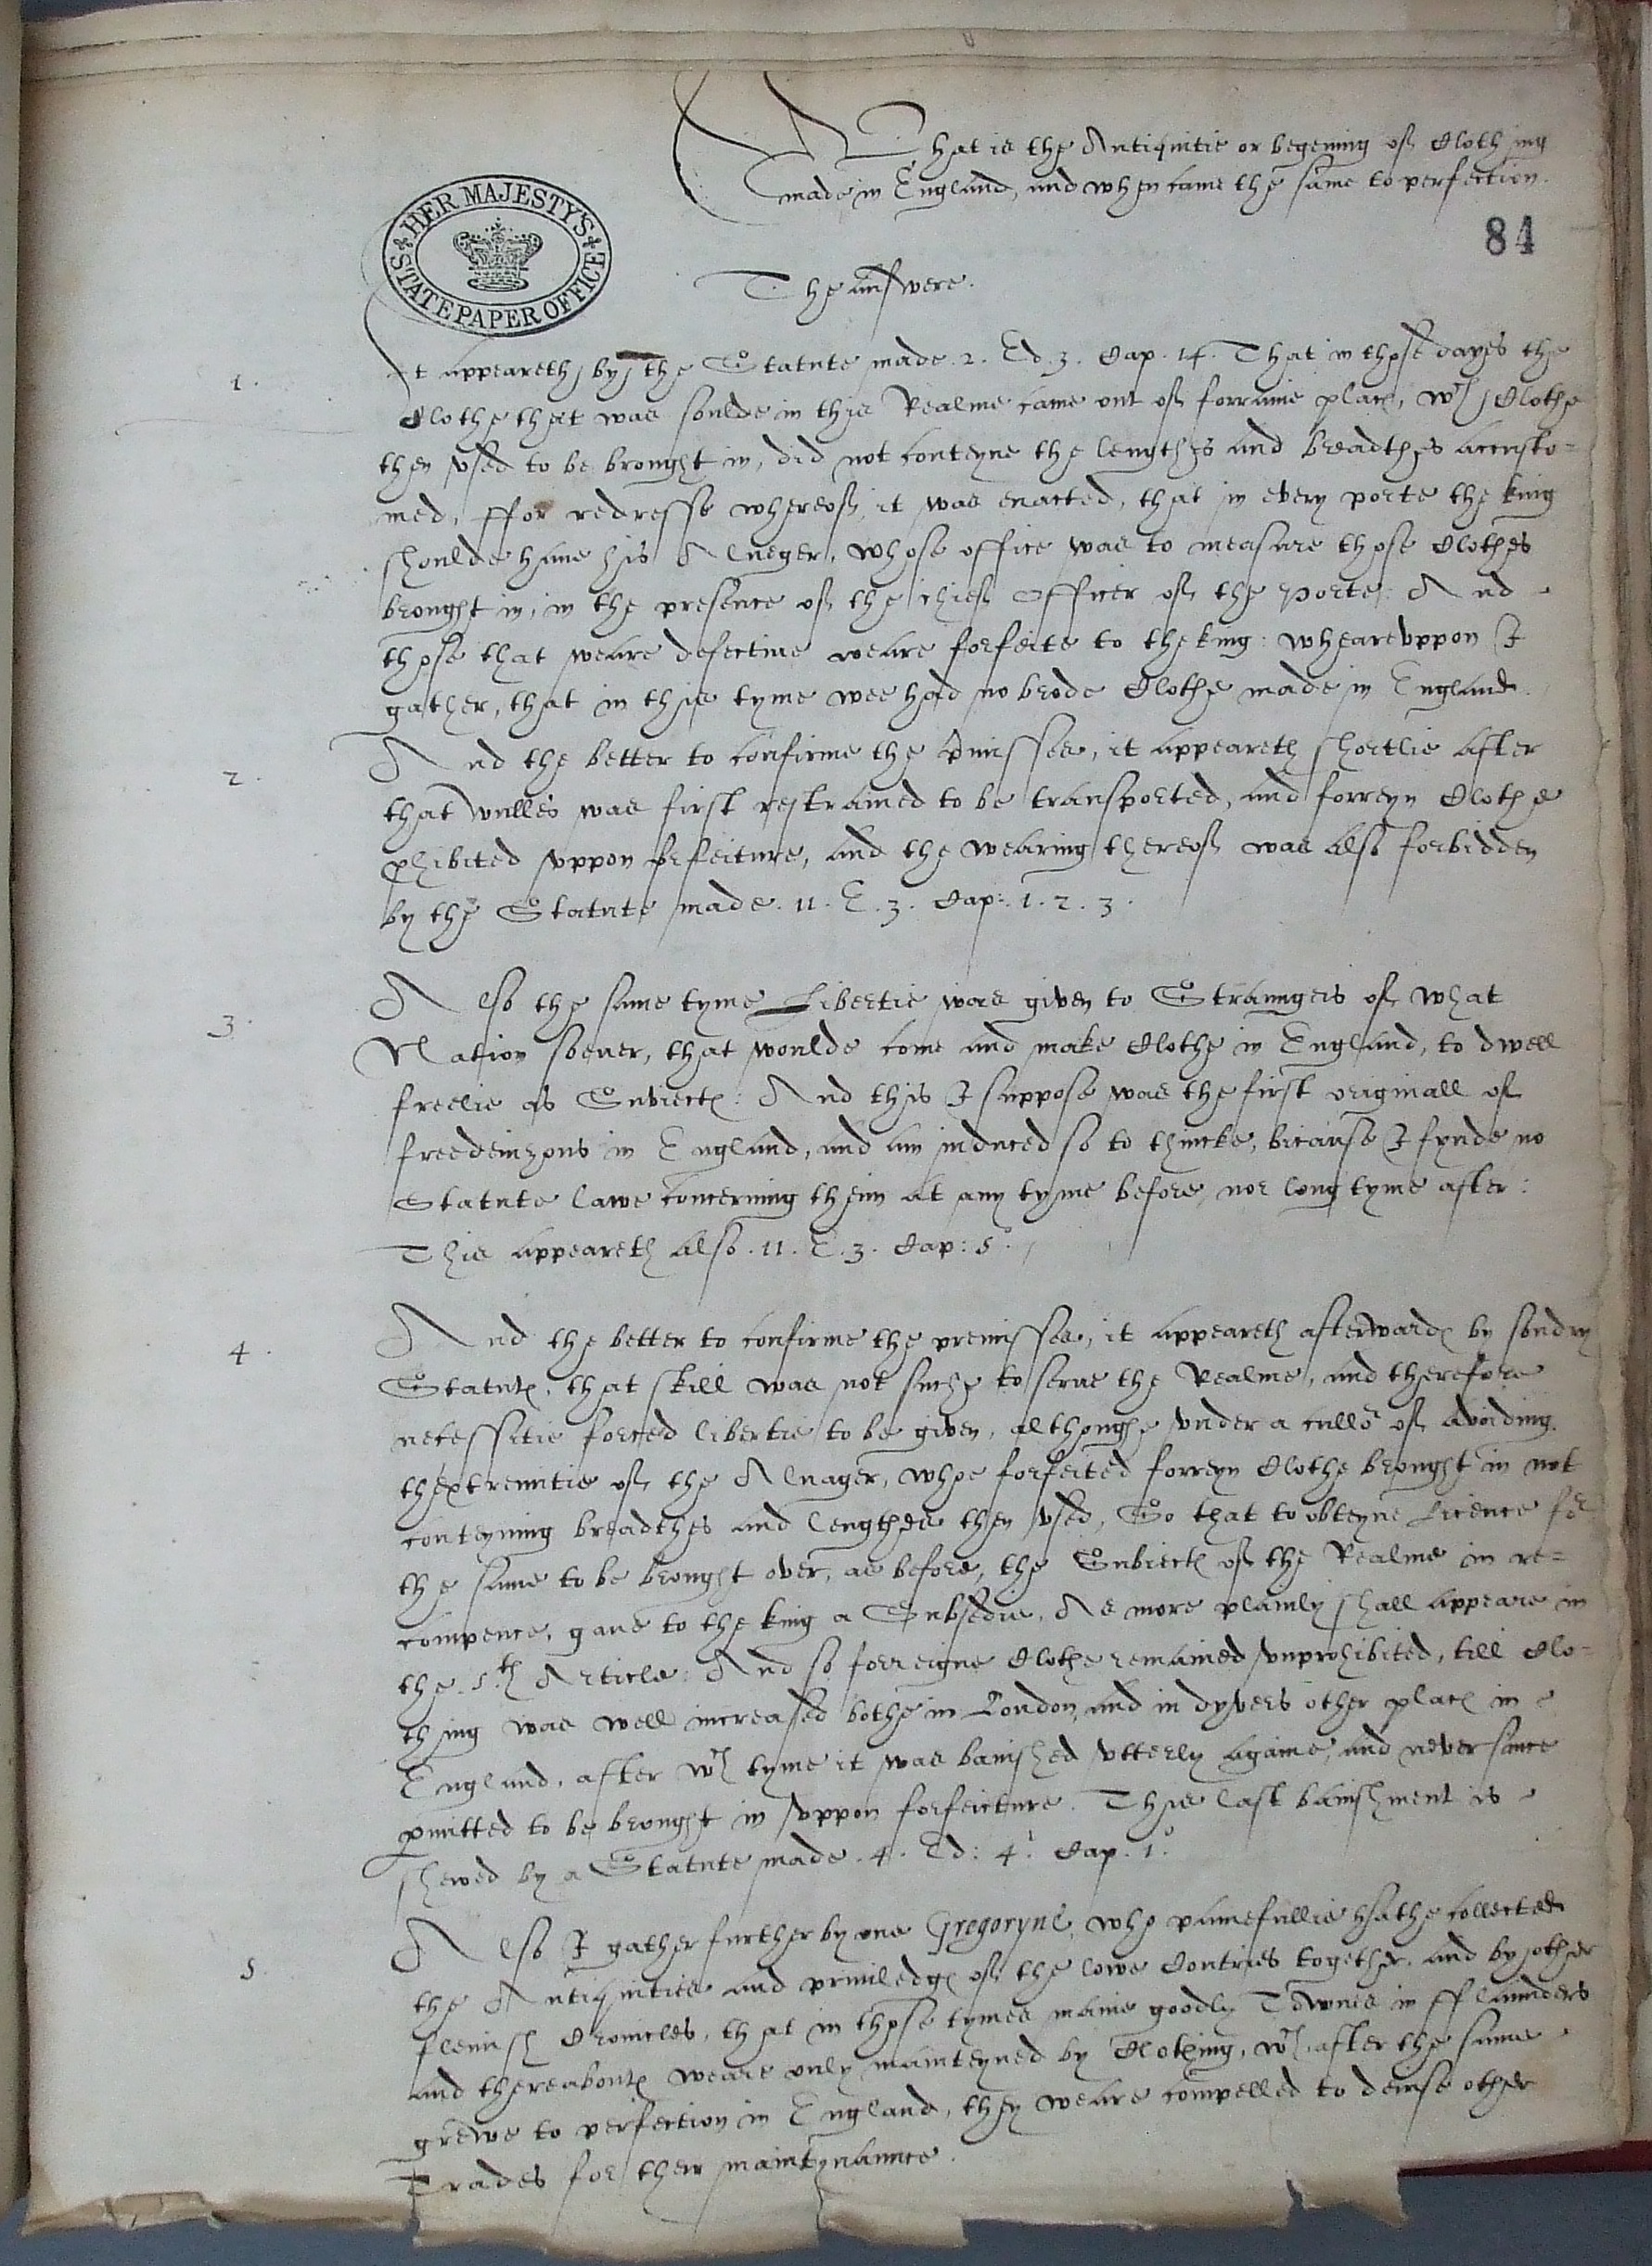 What is the Antiquitie or begening of Clothing
made in England, and when came the same to perfection.
84
HER MAJESTY'S STATE PAPER OFFICE
The answere.
1. It appeareth by the Statute made .2. Ed. 3. Cap. 14. That in those dayes the
Clothe that was soulde in this Realme came out of forraine place, wch Clothe
then vsed to be brought in, did not conteyne the lengthes and breadthes accusto=
med, ffor redresse whereof it was enacted, that in every porte the king
shoulde haue his Alneger, whose office was to measure those Clothes
brought in, in the presence of the chief Officer of the porte: And
those that weare defectiue weare forfeite to the king: wheareuppon I
gather, that in this tyme wee had no brode Clothe made in England.
2. And the better to confirme the pmisses, it appeareth shortlie after
that wulles was first restrained to be transported, and forreyn Clothe
phibited vppon forfeiture, and the wearing thereof was also forbidden
by the Statute made .11. E. 3. Cap: 1. 2. 3.
3. Also the same tyme Libertie was given to Straungers of what
Nation soeuer, that woulde come and make Clothe in England, to dwell
freelie as Subiectes: And this I suppose was the first originall of
freedeinzons in England, and am induced so to thincke, bicause I fynde no
Statute lawe concerning them at any tyme before, nor long tyme after:
This appeareth also .11. E. 3. Cap: 5o.
4. And the better to confirme the premisses, it appeareth afterwardes by sondry
Statutes, that skill was not suche to serue the Realme, and therefore
necessitie forced libertie to be given, althoughe vnder a cullor of avoiding
thextremitie of the Alnager, whoe forfeited forreyn Clothe brought in not
conteyning breadthes and lengthes then vsed, So that to obteyne Licence for
the same to be brought over, as before, the Subiectes of the Realme in re=
compence, gaue to the king a Subsedie, As more plainly shall appeare in
the .5.th Article: And so forreigne Clothe remained vnprohibited, till Clo=
thing was well increased bothe in London, and in dyvers other places in
England, after wch tyme it was banished vtterly againe, and never since
pmitted to be brought in vppon forfeicture. This last banishment is
shewed by a Statute made .4. Ed: 4i. Cap. 1o.
5 Also I gather further by one Gregoryne, who painefullie hathe collected
the Antiquities and priuiledges of the lowe Contries together, and by other
flemish Cronicles, that in those tymes manie goodly Townes in fflaunders
and thereaboutes weare only mainteyned by Clothing, wch after the same
grewe to perfection in England, they weare compelled to deuise other
Trades for their maintynaunce.